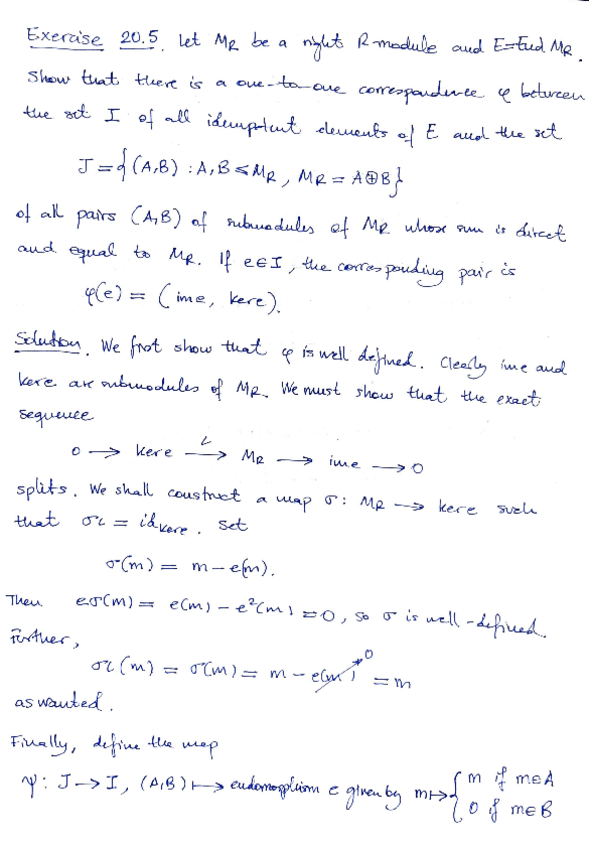 Exercise 20.5. Let M_R be a right R-module and E=End M_R.
Show that there is a one-to-one correspondence φ between
the set I of all idempotent elements of E and the set
J = {(A,B) : A,B ≤ M_R, M_R = A⊕B}
of all pairs (A,B) of submodules of M_R whose sum is direct
and equal to M_R. If e∈I, the corresponding pair is
φ(e) = (im e, ker e).
Solution. We first show that φ is well defined. Clearly im e and
ker e are submodules of M_R. We must show that the exact
sequence
0 → ker e →^ι M_R → im e → 0
splits. We shall construct a map σ: M_R → ker e such
that σι = id_{ker e}. Set
σ(m) = m − e(m).
Then eσ(m) = e(m) − e²(m) = 0, so σ is well-defined.
Further,
σι(m) = σ(m) = m − e(m)↗0 = m
as wanted.
Finally, define the map
ψ: J → I, (A,B) ↦ endomorphism e given by m ↦ { m if m∈A
0 if m∈B